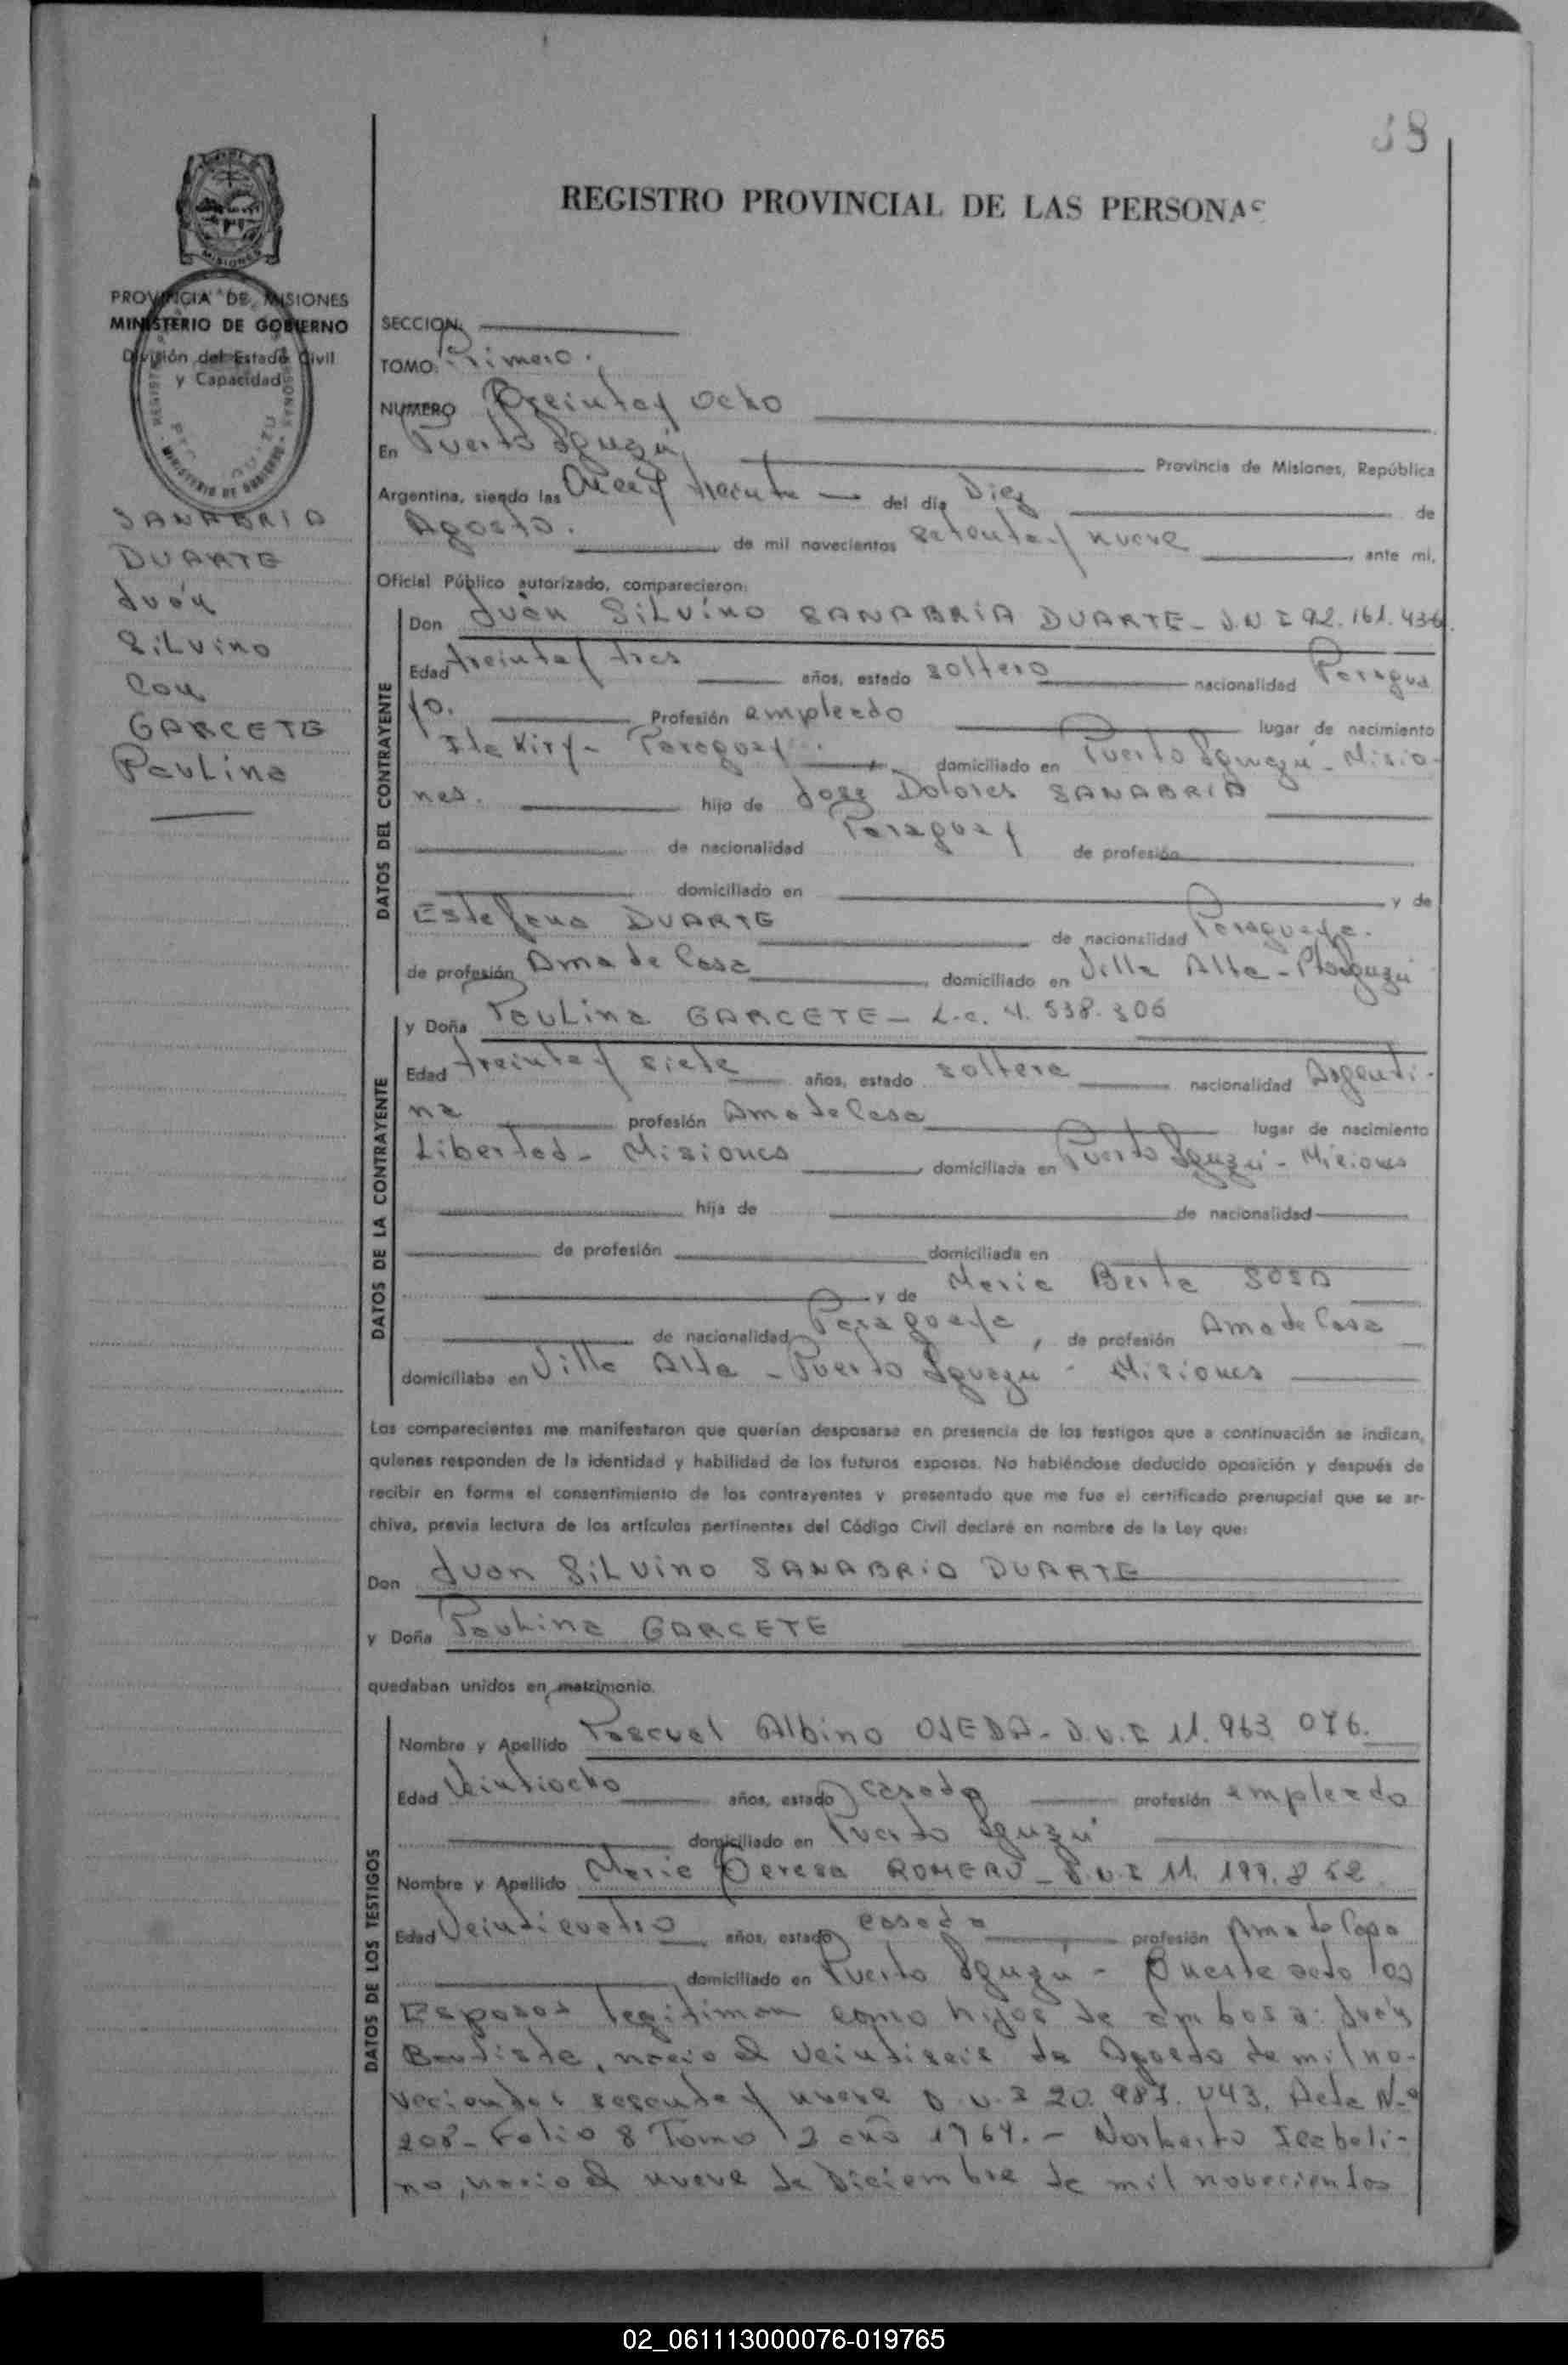 38
REGISTRO PROVINCIAL DE LAS PERSONAS
MISIONES
PROVINCIA DE MISIONES
MINISTERIO DE GOBIERNO
División del Estado Civil
y Capacidad
SANABRIA
DUARTE
Juán
Silvino
con
GARCETE
Paulina
SECCION
TOMO: Primero.
NUMERO Treinta y ocho
En Puerto Iguazú, Provincia de Misiones, República
Argentina, siendo las Once y treinta del día Diez de
Agosto. de mil novecientos setenta y nueve, ante mi,
Oficial Público autorizado, comparecieron:
DATOS DEL CONTRAYENTE
Don Juán Silvino SANABRIA DUARTE - D.N.I 92.161.436.
Edad treinta y tres años, estado soltero nacionalidad Paragua
yo. Profesión empleado lugar de nacimiento
Paraguay. domiciliado en Puerto Iguazú - Misio-
nes. hijo de José Dolores SANABRIA
de nacionalidad Paraguay de profesión
domiciliado en y de
DUARTE de nacionalidad Paraguaya.
de profesión Ama de Casa, domiciliado en Villa Alta - Pto Iguazú
DATOS DE LA CONTRAYENTE
y Doña Paulina GARCETE - L.C. 4.538.306
Edad treinta y siete años, estado soltera nacionalidad Argenti-
na profesión Ama de Casa lugar de nacimiento
Libertad - Misiones, domiciliada en Puerto Iguazú - Misiones
hija de de nacionalidad
de profesión domiciliada en
y de Maria Berta SOSA
de nacionalidad Paraguaya, de profesión Ama de Casa
domiciliaba en Villa Alta - Puerto Iguazu - Misiones
Los comparecientes me manifestaron que querían desposarse en presencia de los testigos que a continuación se indican,
quienes responden de la identidad y habilidad de los futuros esposos. No habiéndose deducido oposición y después de
recibir en forma el consentimiento de los contrayentes y presentado que me fue el certificado prenupcial que se ar-
chiva, previa lectura de los artículos pertinentes del Código Civil declaré en nombre de la Ley que:
Don Juan Silvino SANABRIA DUARTE
y Doña Paulina GARCETE
quedaban unidos en matrimonio.
DATOS DE LOS TESTIGOS
Nombre y Apellido Pascual Albino OJEDA - D.N.I 11.963.076.
Edad Veintiocho años, estado casado profesión empleado
domiciliado en Puerto Iguazú
Nombre y Apellido Maria Teresa ROMERO - D.N.I 11.199.852.
Edad Veinticuatro años, estado casada profesión Ama de Casa
domiciliado en Puerto Iguazú - En este acto los
Esposos legitiman como hijos de ambos a: Juán
Bautista, nacio el veintiseis de Agosto de mil no-
vecientos sesenta y nueve D.N.I 20.987.043. Acta N.º
208 - Folio 8 Tomo 2 año 1969. - Norberto
no, nacio el nueve de Diciembre de mil novecientos
02_061113000076-019765